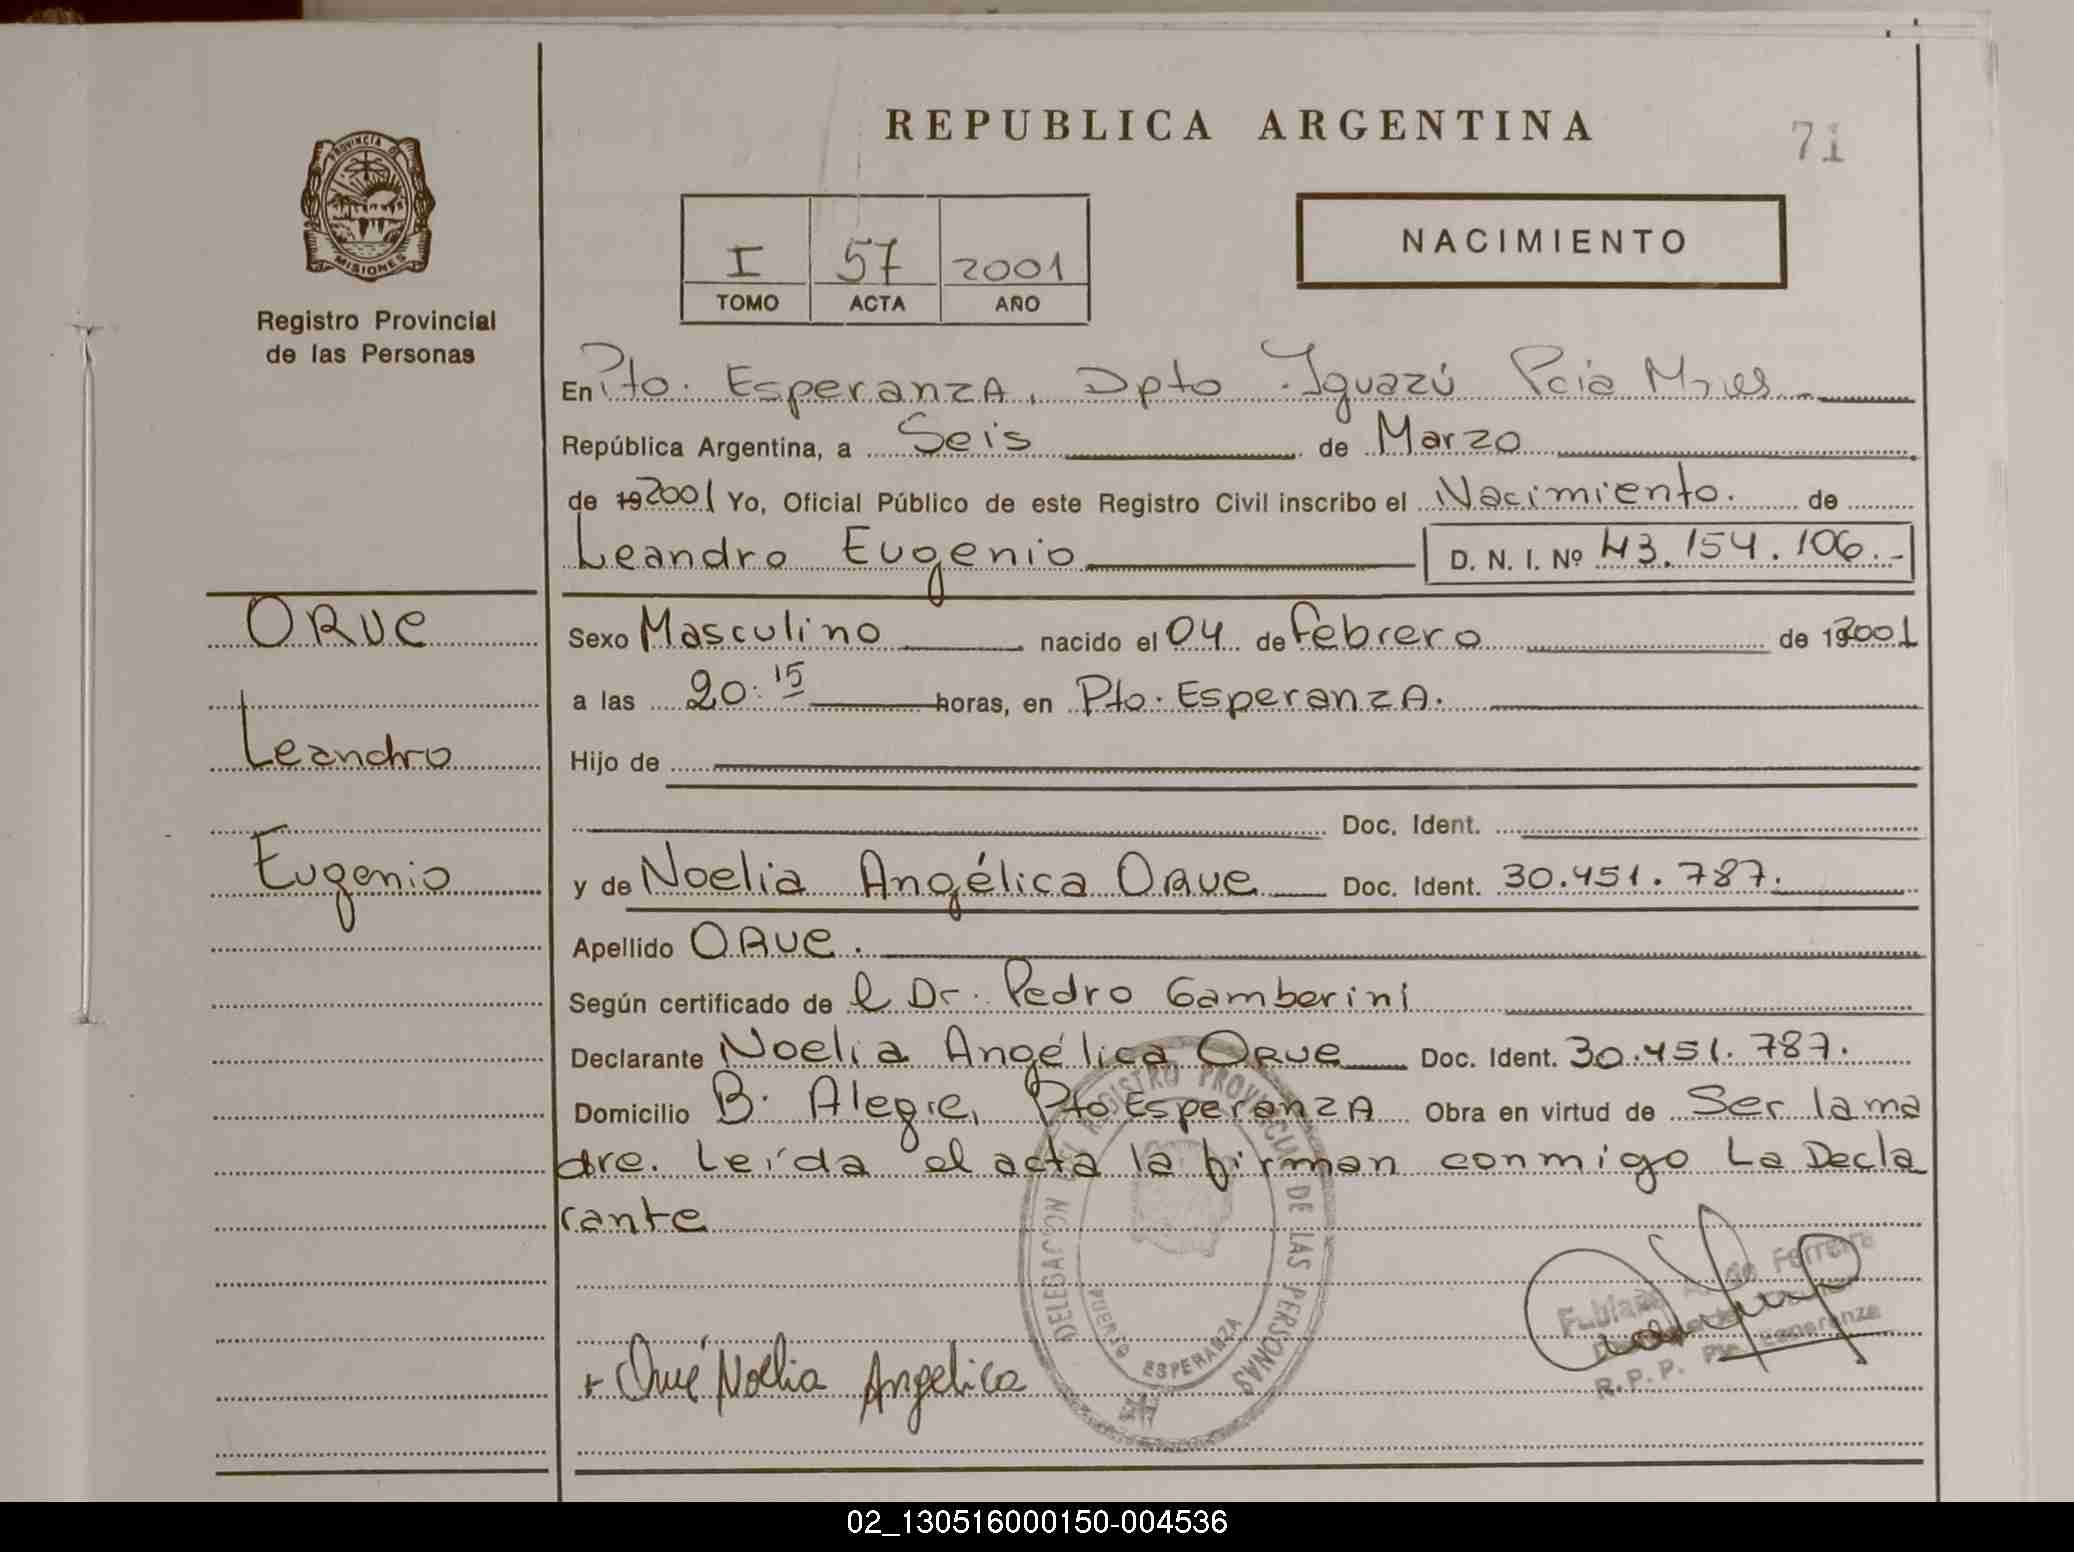 REPUBLICA ARGENTINA
71
PROVINCIA DE
MISIONES
Registro Provincial
de las Personas
I 57 2001
TOMO ACTA AÑO
NACIMIENTO
En Pto. Esperanza, Dpto. Iguazú Pcia Mnes.
República Argentina, a Seis de Marzo
de 19 2001 Yo, Oficial Público de este Registro Civil inscribo el Nacimiento. de
Leandro Eugenio D. N. I. Nº 43.154.106.-
ORUE
Leandro
Eugenio
Sexo Masculino nacido el 04 de Febrero de 19 2001
a las 20:15 horas, en Pto. Esperanza.
Hijo de
Doc. Ident.
y de Noelia Angélica ORUE Doc. Ident. 30.451.787.
Apellido ORUE.
Según certificado de l Dr. Pedro Gamberini
Declarante Noelia Angélica ORUE Doc. Ident. 30.451.787.
Domicilio B. Alegre, Pto Esperanza Obra en virtud de Ser la ma
dre. Leída el acta la firman conmigo La Decla
rante
DELEGACION DEL REGISTRO PROVINCIAL DE LAS PERSONAS
PUERTO ESPERANZA
+ Orué Noelia Angelica
Ferreira
R.P.P. Pto. Esperanza
02_130516000150-004536